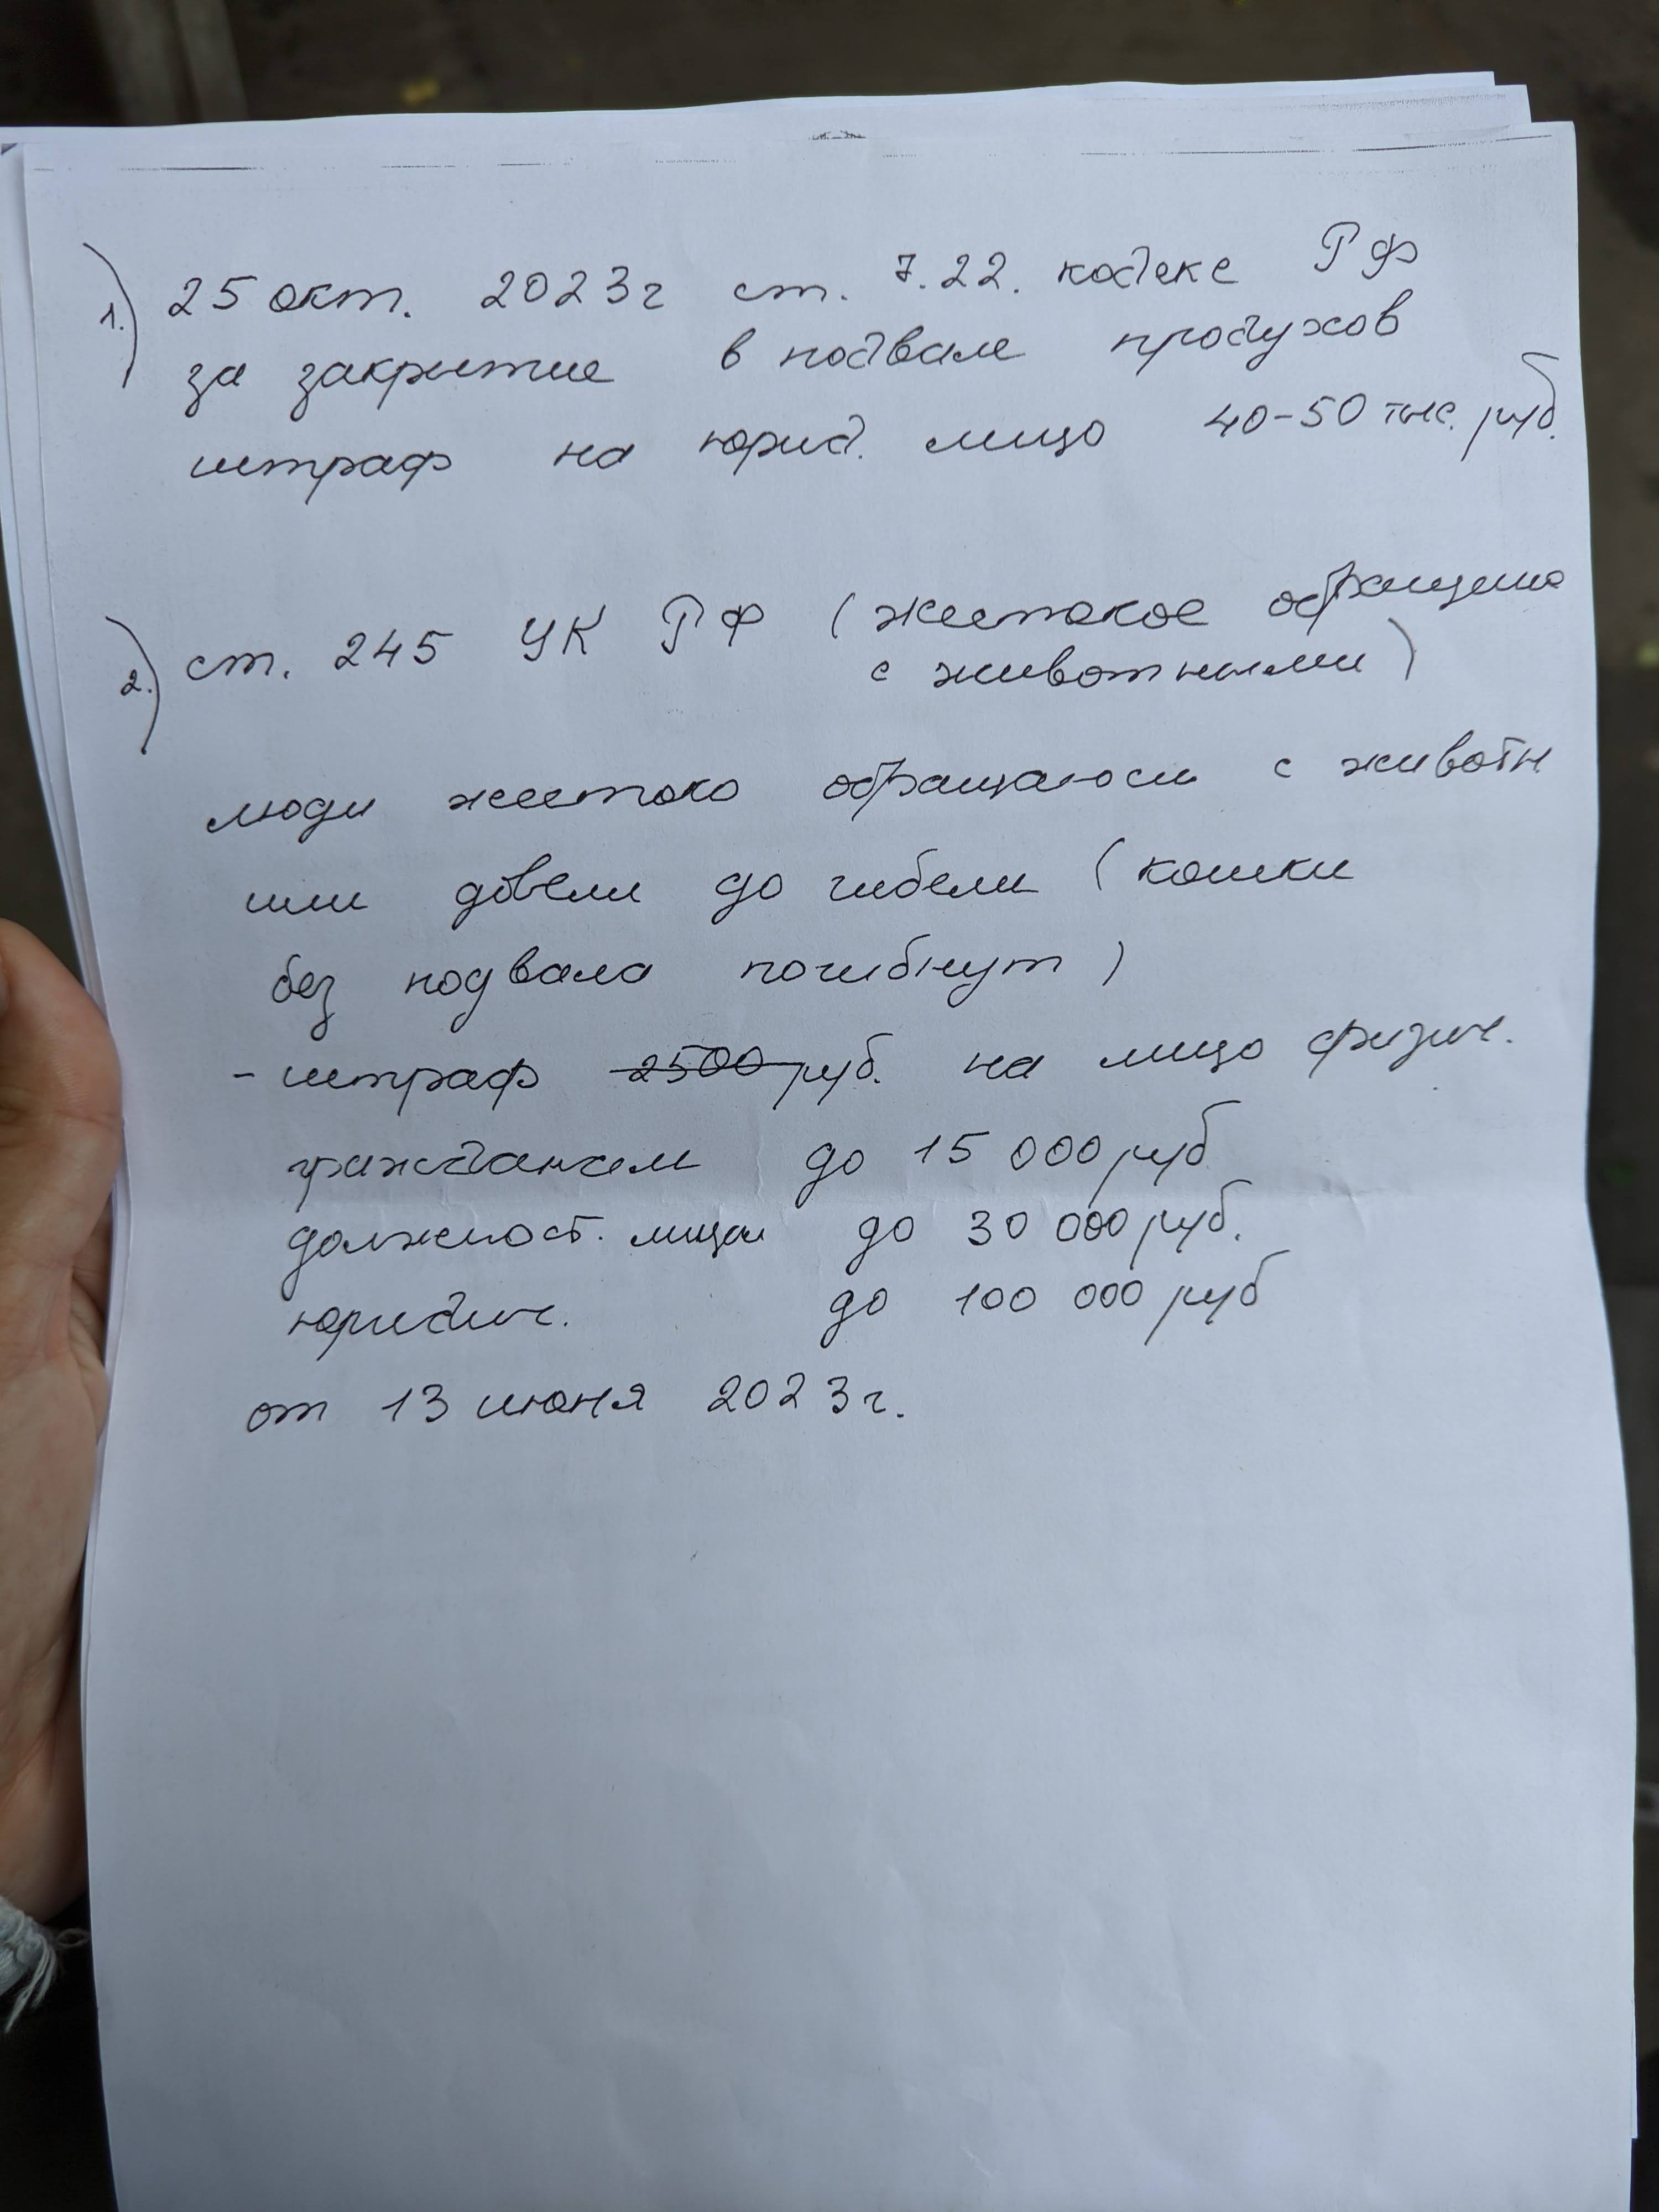 1.) 25 окт. 2023г ст. 7.22. кодекс РФ
за закрытие в подвале продухов
штраф на юрид. лицо 40-50 тыс. руб.
2.) ст. 245 УК РФ (жестокое обращение
с животными)
люди жестоко обращаюся с животн
или довели до гибели (кошки
без подвала погибнут)
- штраф 2500 руб. на лицо физич.
гражданам до 15 000 руб
должност. лица до 30 000 руб.
юридич. до 100 000 руб
от 13 июня 2023г.